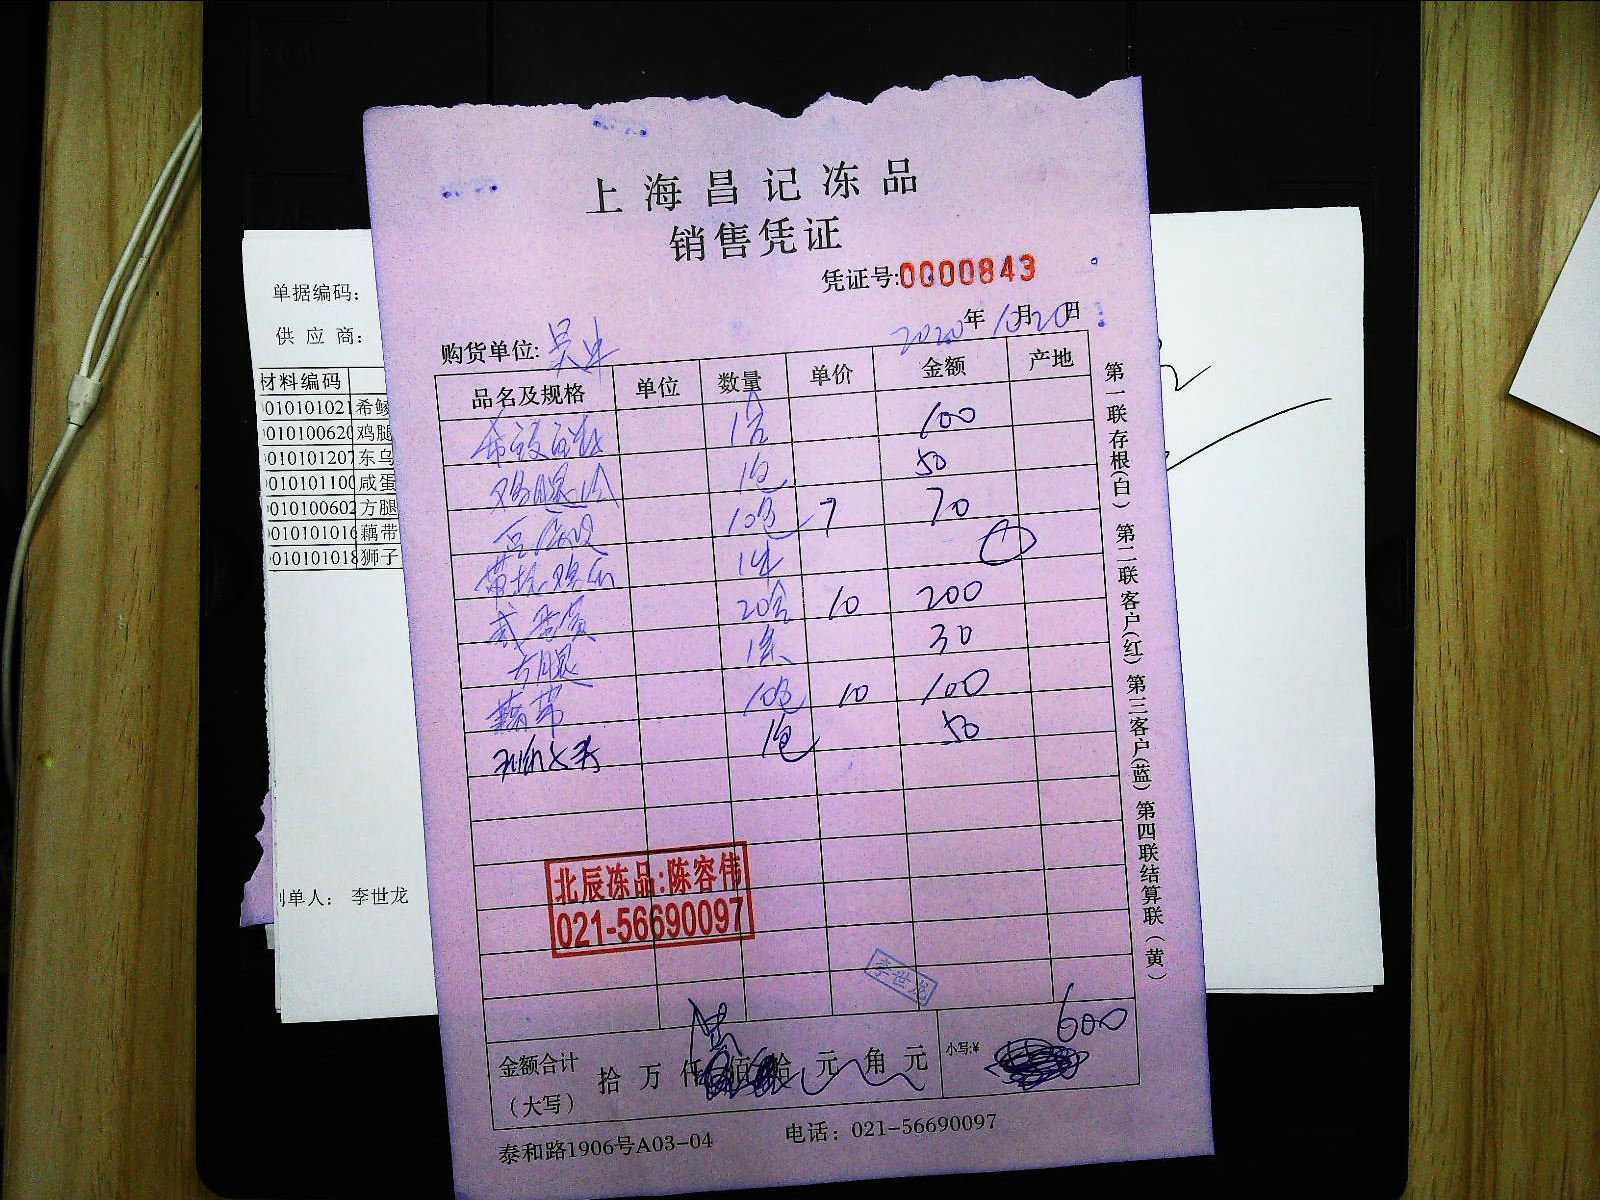 上海昌记冻品
销售凭证
凭证号:0000843
购货单位: 2020年10月20日
品名及规格 单位 数量 单价 金额 产地
1合 100
鸡腿 1包 50
10包 7 70
1件
20合 10 200
方腿 1条 30
藕带 10包 10 100
1包 50
北辰冻品:陈容伟
021-56690097
李世龙
金额合计
(大写)
拾 万 仟 陆 佰 拾 元 角 元
小写:¥ 600
泰和路1906号A03-04 电话: 021-56690097
第一联存根(白) 第二联客户(红) 第三客户(蓝) 第四联结算联(黄)
单据编码:
供应商:
材料编码
010101021 希鲮
010100620 鸡腿
010101207 东乌
010101100 咸蛋
010100602 方腿
010101016 藕带
010101018 狮子
制单人: 李世龙